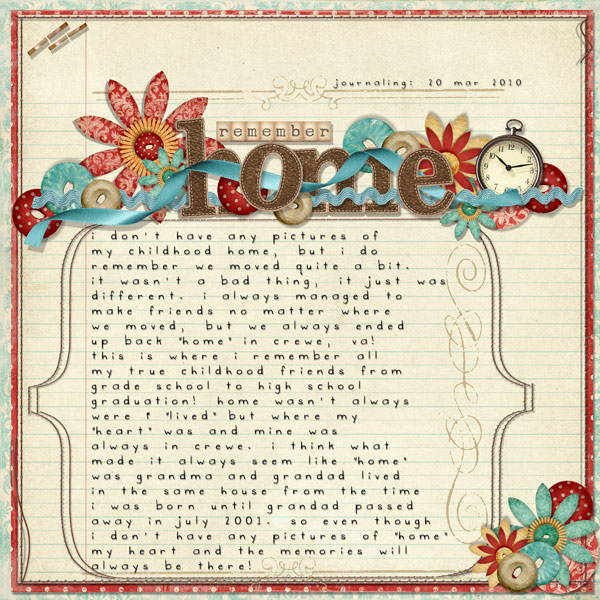 journaling: 20 mar 2010
remember
home
i don't have any pictures of
my childhood home, but i do
remember we moved quite a bit.
it wasn't a bad thing, it just was
different. i always managed to
make friends no matter where
we moved, but we always ended
up back "home" in crewe, va!
this is where i remember all
my true childhood friends from
grade school to high school
graduation! home wasn't always
were i "lived" but where my
"heart" was and mine was
always in crewe. i think what
made it always seem like "home"
was grandma and grandad lived
in the same house from the time
i was born until grandad passed
away in july 2001. so even though
i don't have any pictures of "home"
my heart and the memories will
always be there!